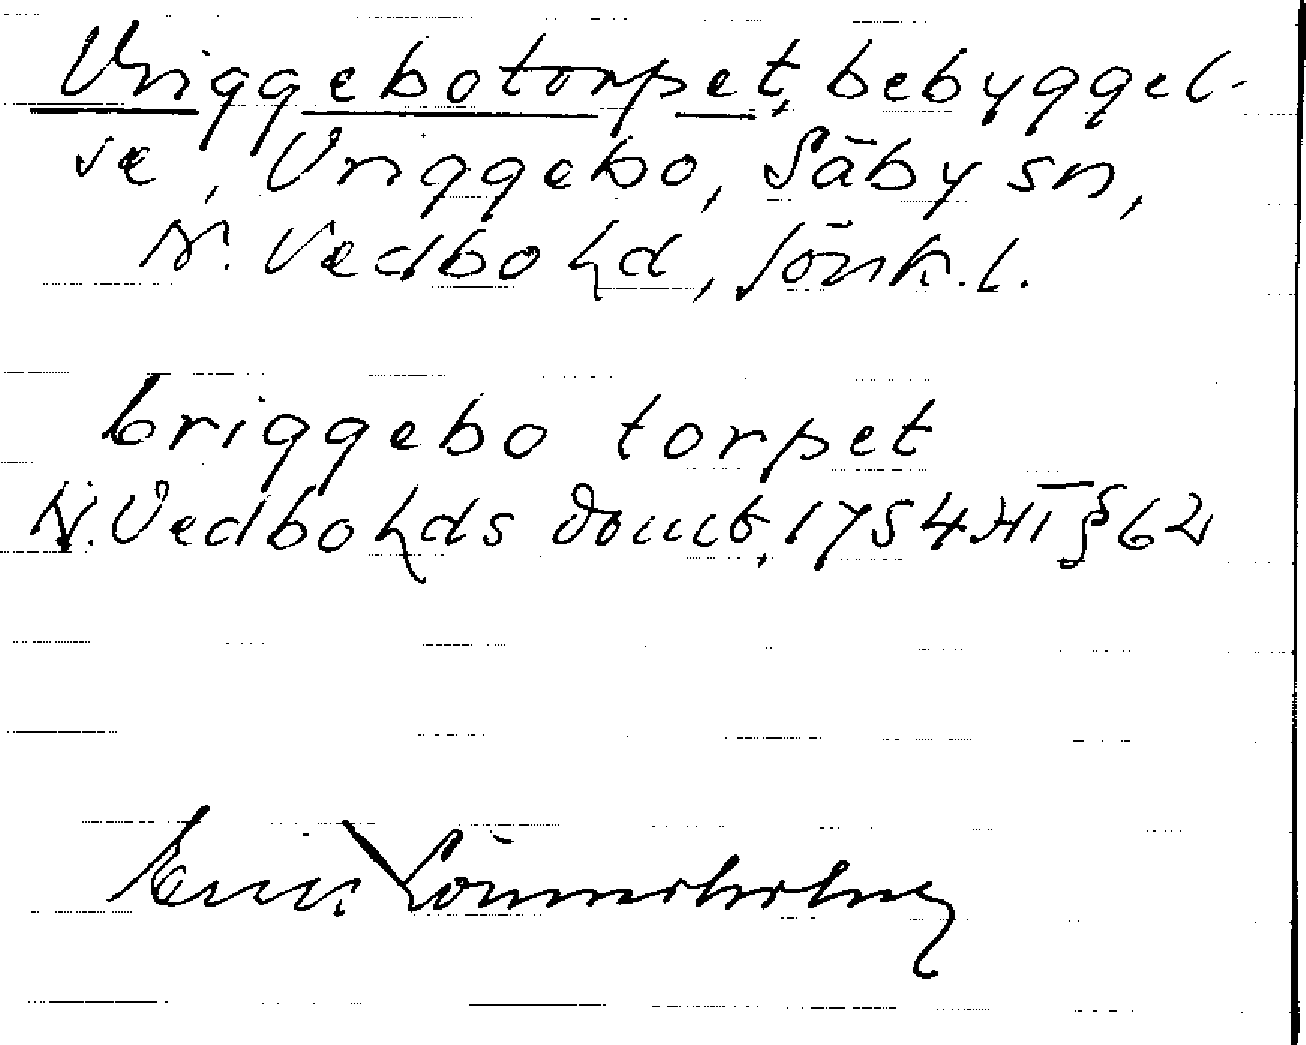 Vriggebotorpet, bebyggel-
se, Vriggebo, Säby sn,
N. Vedbo hd, Jönk. l.
Vriggebo torpet
N. Vedbo hds domb. 1754 HT § 62
Eric Lönnerholm